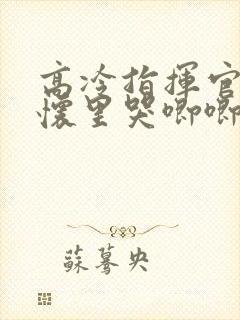 高冷指揮官
懷里哭唧唧
蘇驀央